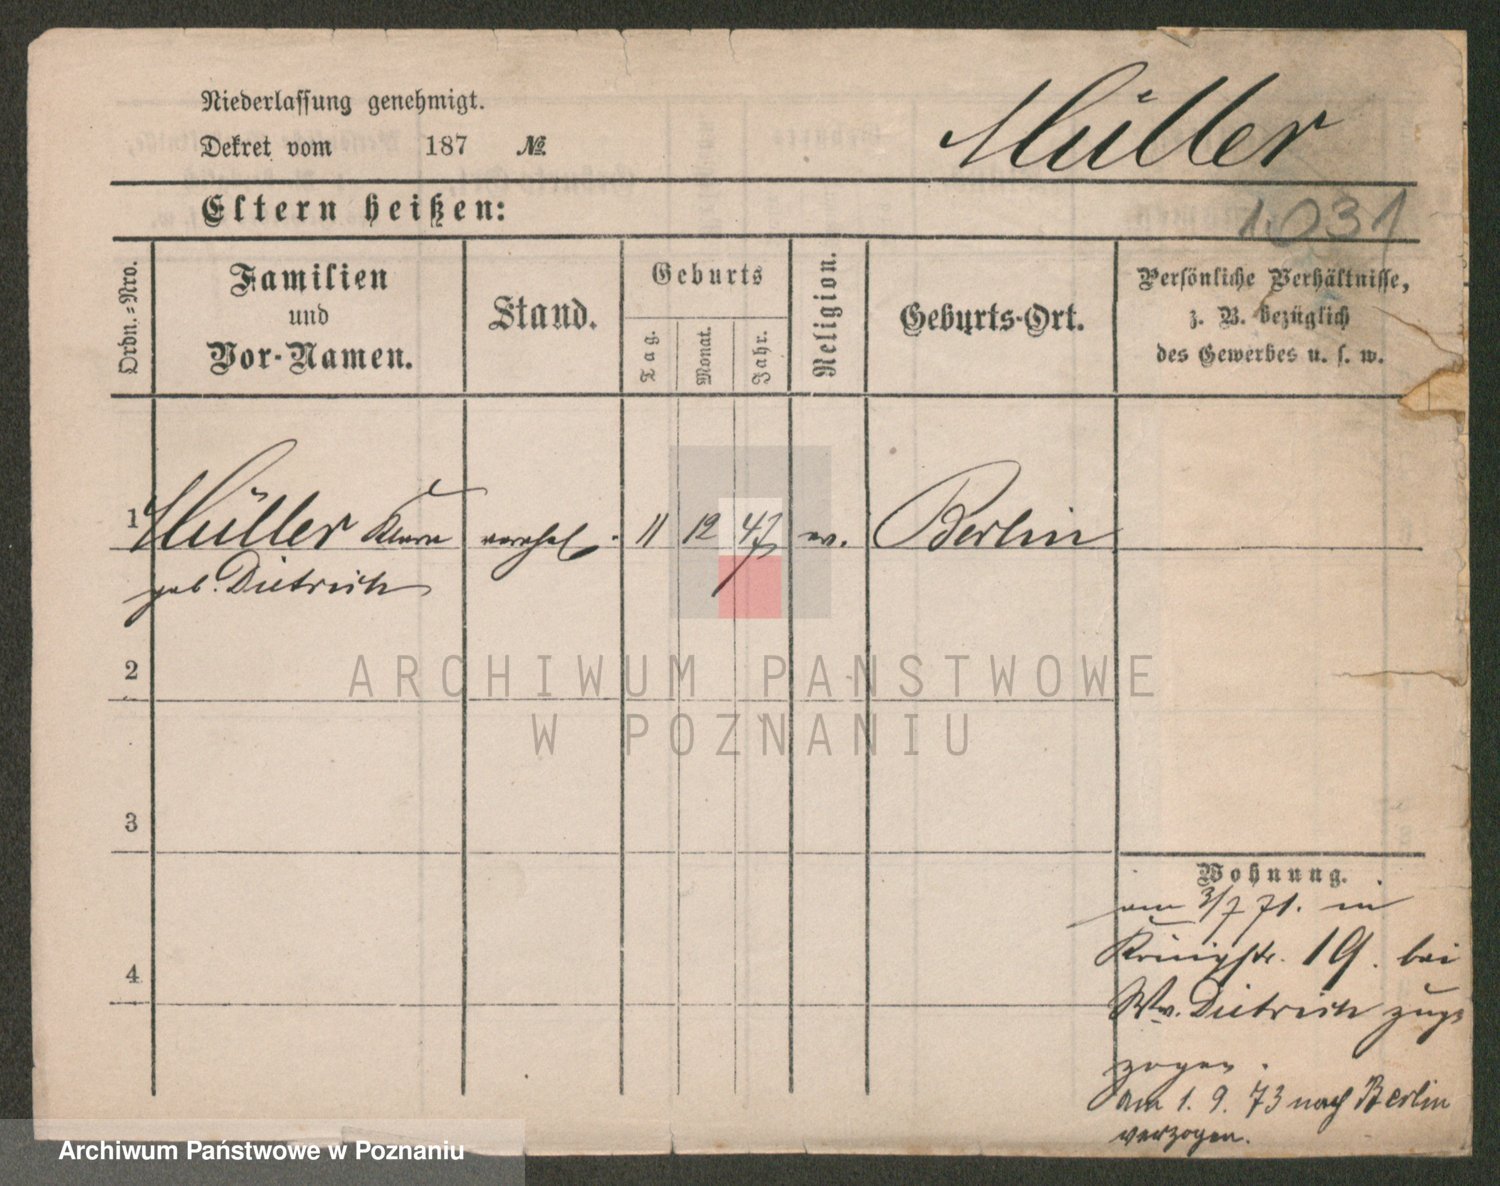 Niederlassung genehmigt.
Dekret vom 187 №
Müller
1.031
Eltern heißen:
Ordn.-Nro.
Familien
und
Vor-Namen.
Stand.
Geburts
Tag.
Monat.
Jahr.
Religion.
Geburts-Ort.
Persönliche Verhältnisse,
z. B. bezüglich
des Gewerbes u. s. w.
1 Müller Klara verehel. 11 12 47 ev. Berlin
geb. Dietrich
2
3
4
Wohnung.
am 3/7 71. in
Königstr. 19. bei
Ww. Dietrich zuge
zogen.
am 1. 9. 73 nach Berlin
verzogen.
ARCHIWUM PAŃSTWOWE
W POZNANIU
Archiwum Państwowe w Poznaniu